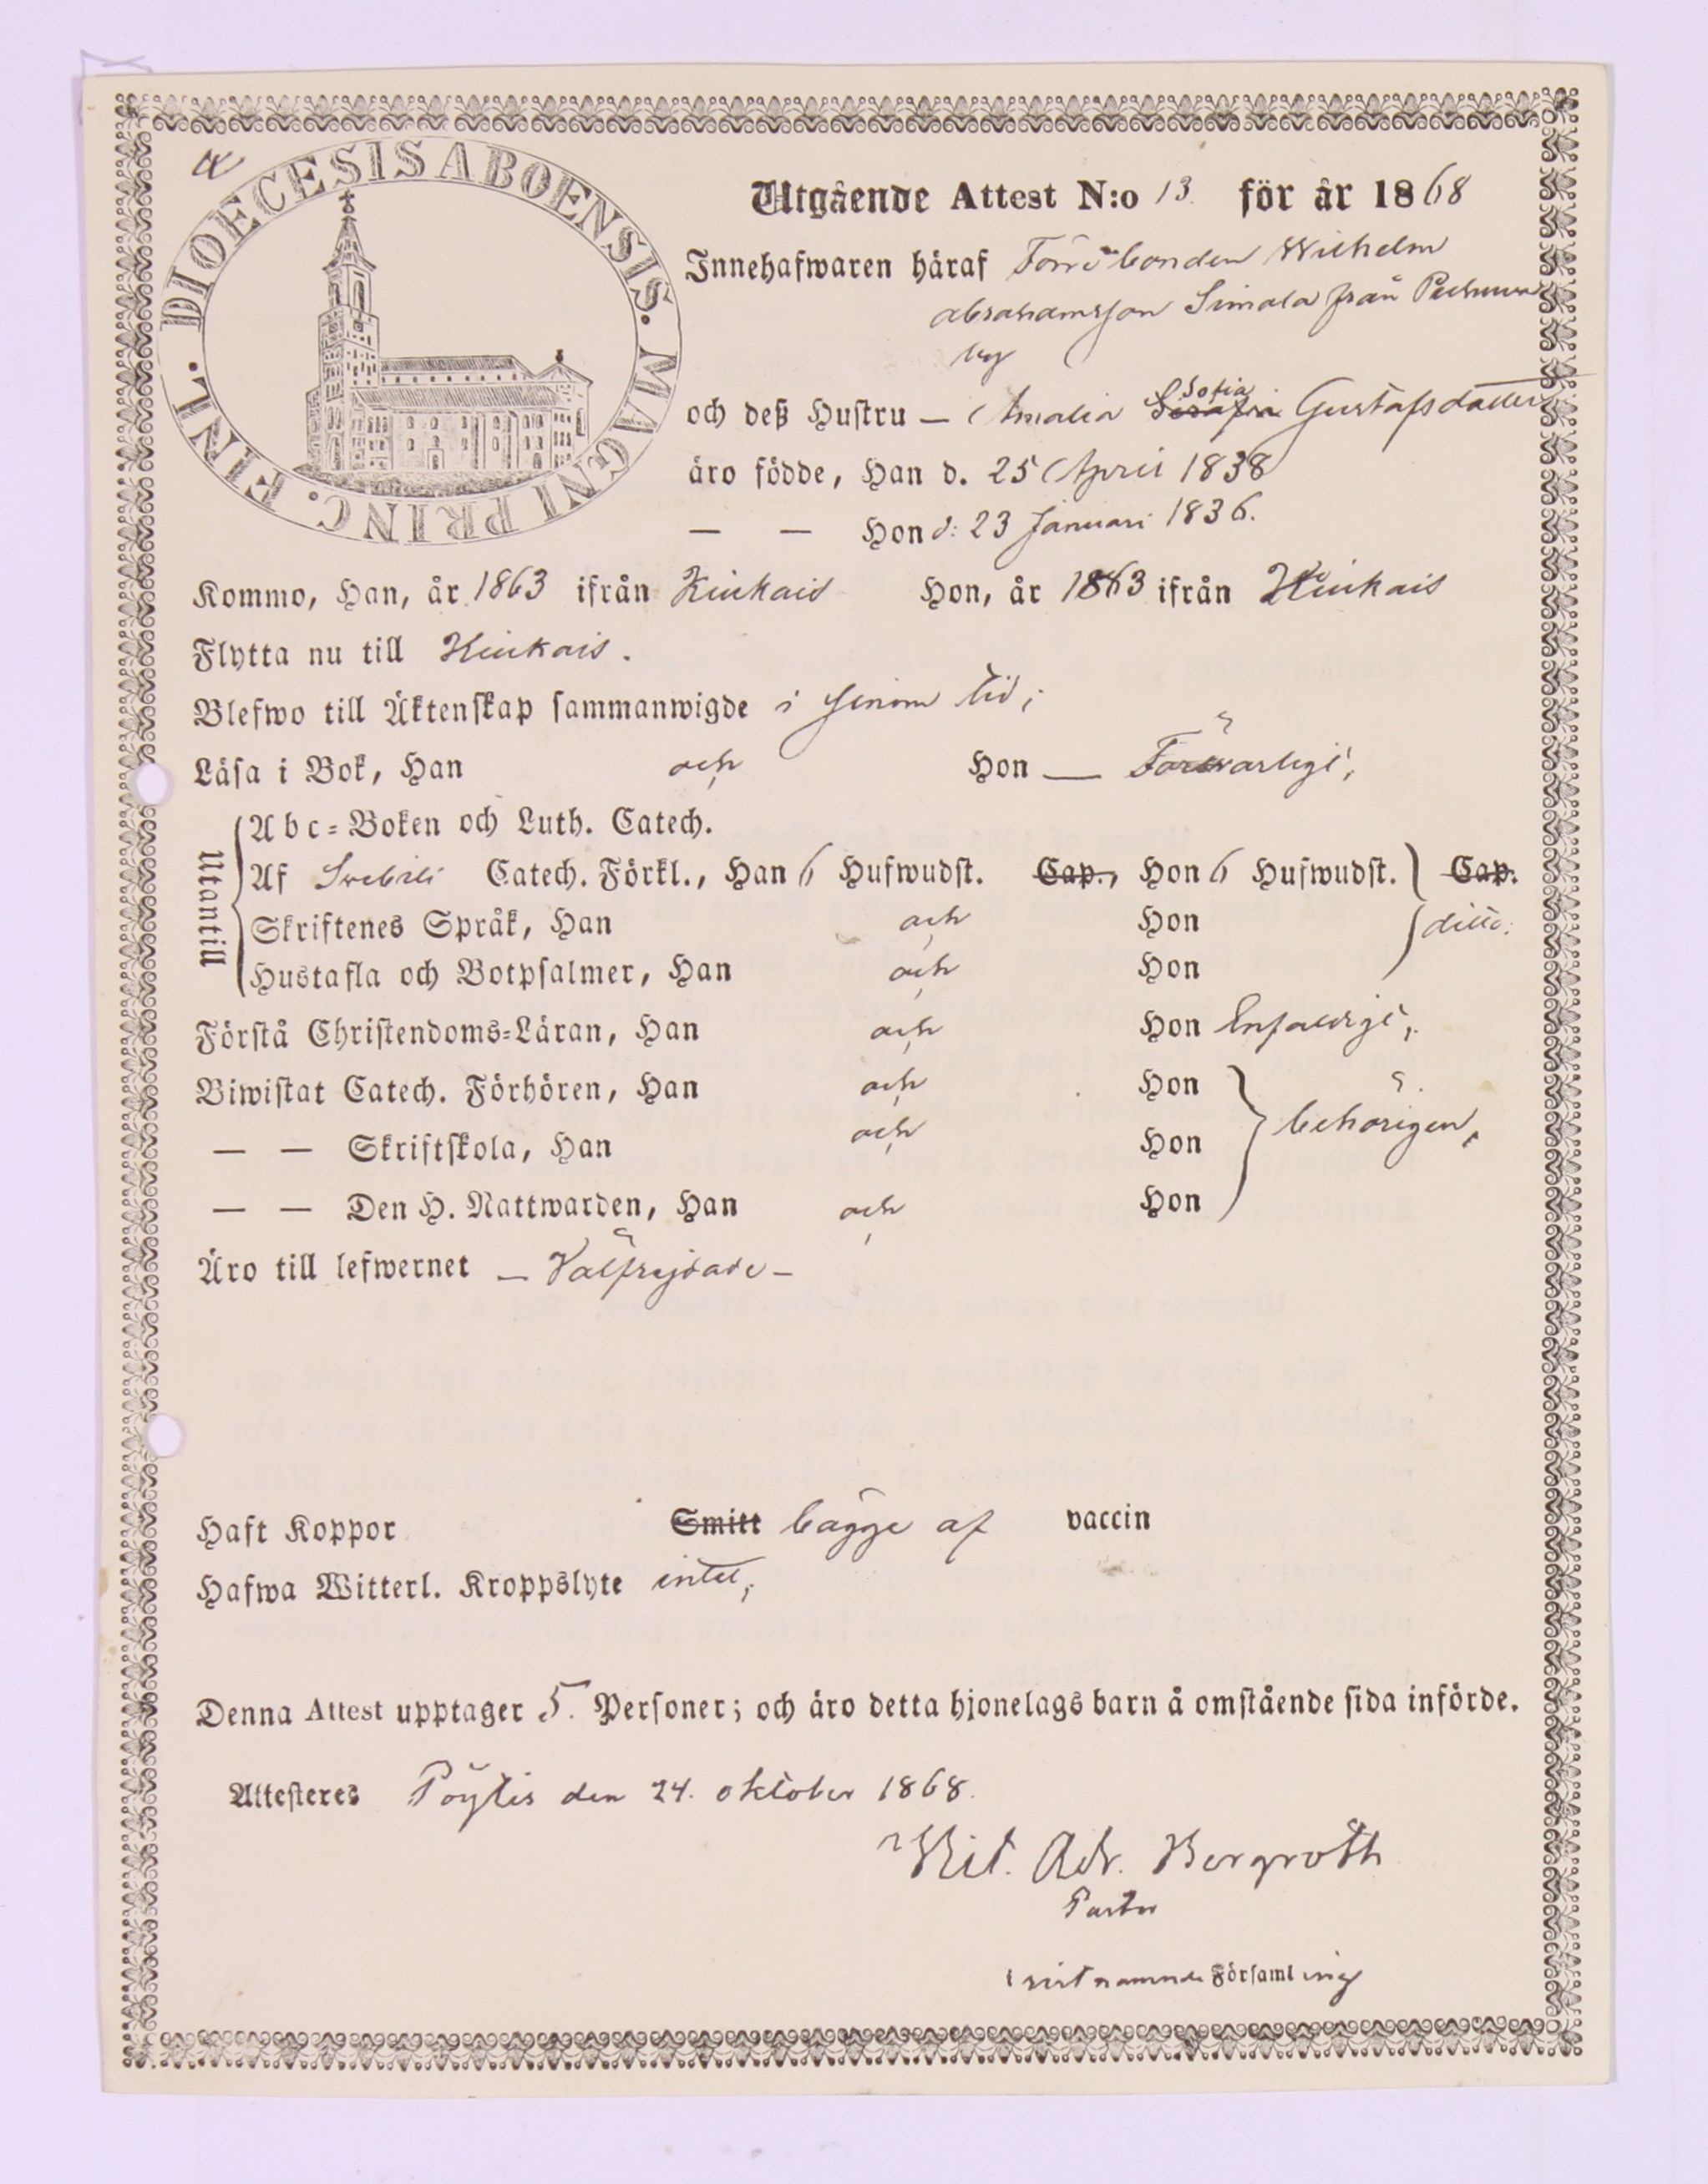 DIOECESIS ABOENSIS. MAGNI PRINC. FINL.
Utgående Attest N:o 13. för år 1868
Innehafwaren häraf Förre bonden Wilhelm
Abrahamsson Simola från
by
och deß Hustru — Amalia Serafia Sofia Gustafsdotter
äro födde, Han d. 25 April 1838
— — Hon d: 23 Januari 1836.
Kommo, Han, år 1863 ifrån Kiukais Hon, år 1863 ifrån Kiukais
Flytta nu till Kiukais.
Blefwo till Äktenskap sammanwigde i sinom tid;
Läsa i Bok, Han och Hon — Försvarligt;
Utantill
Abc-Boken och Luth. Catech.
Af Svebilii Catech. Förkl., Han 6 Hufwudst. Cap., Hon 6 Hufwudst. Cap.
Skriftenes Språk, Han och Hon ditto.
Hustafla och Botpsalmer, Han och Hon
Förstå Christendoms-Läran, Han och Hon Enfaldigt;
Biwistat Catech. Förhören, Han och Hon
— — Skriftskola, Han och Hon behörigen,
— — Den H. Nattwarden, Han och Hon
Äro till lefwernet — Välfrejdade —
Haft Koppor Smitt bägge af vaccin
Hafwa Witterl. Kroppslyte intet;
Denna Attest upptager 5. Personer; och äro detta hjonelags barn å omstående sida införde.
Attesteres Pöytis den 24. oktober 1868.
Wil. Adr. Bergroth
Pastor
i sistnämnde Församling